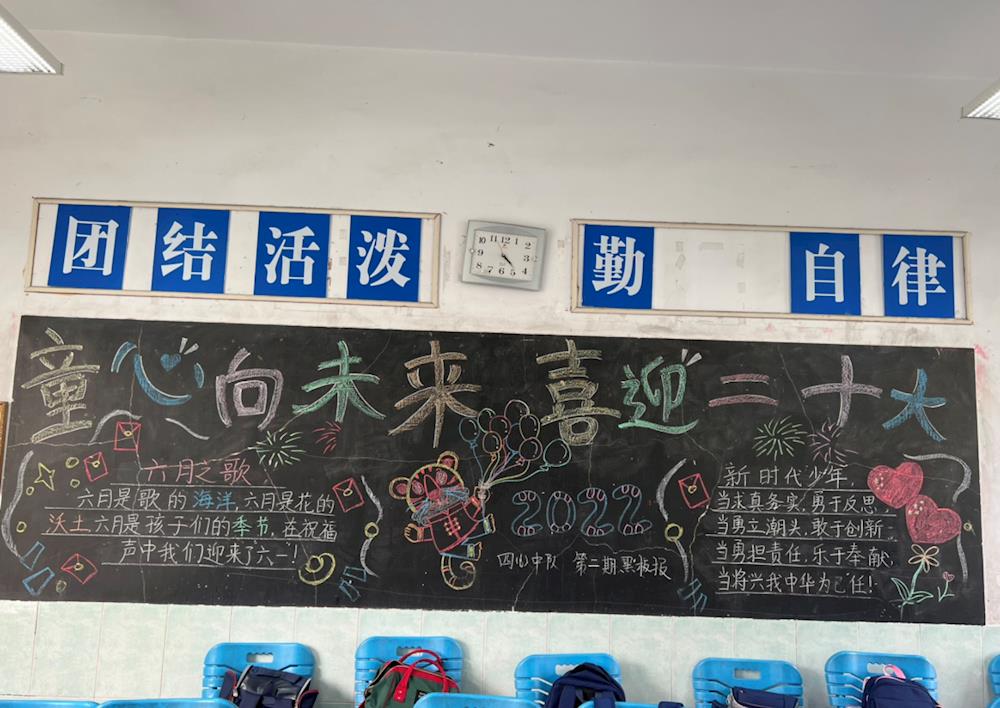 团结活泼
勤 自律
10 11 12 1 2 3 4 5 6 7 8 9
童心向未来喜迎二十大
六月之歌
六月是歌的海洋,六月是花的
沃土六月是孩子们的季节,在祝福
声中我们迎来了六一!
2022
四(1)中队 第二期黑板报
新时代少年,
当求真务实,勇于反思
当勇立潮头,敢于创新
当勇担责任,乐于奉献,
当将兴我中华为己任!